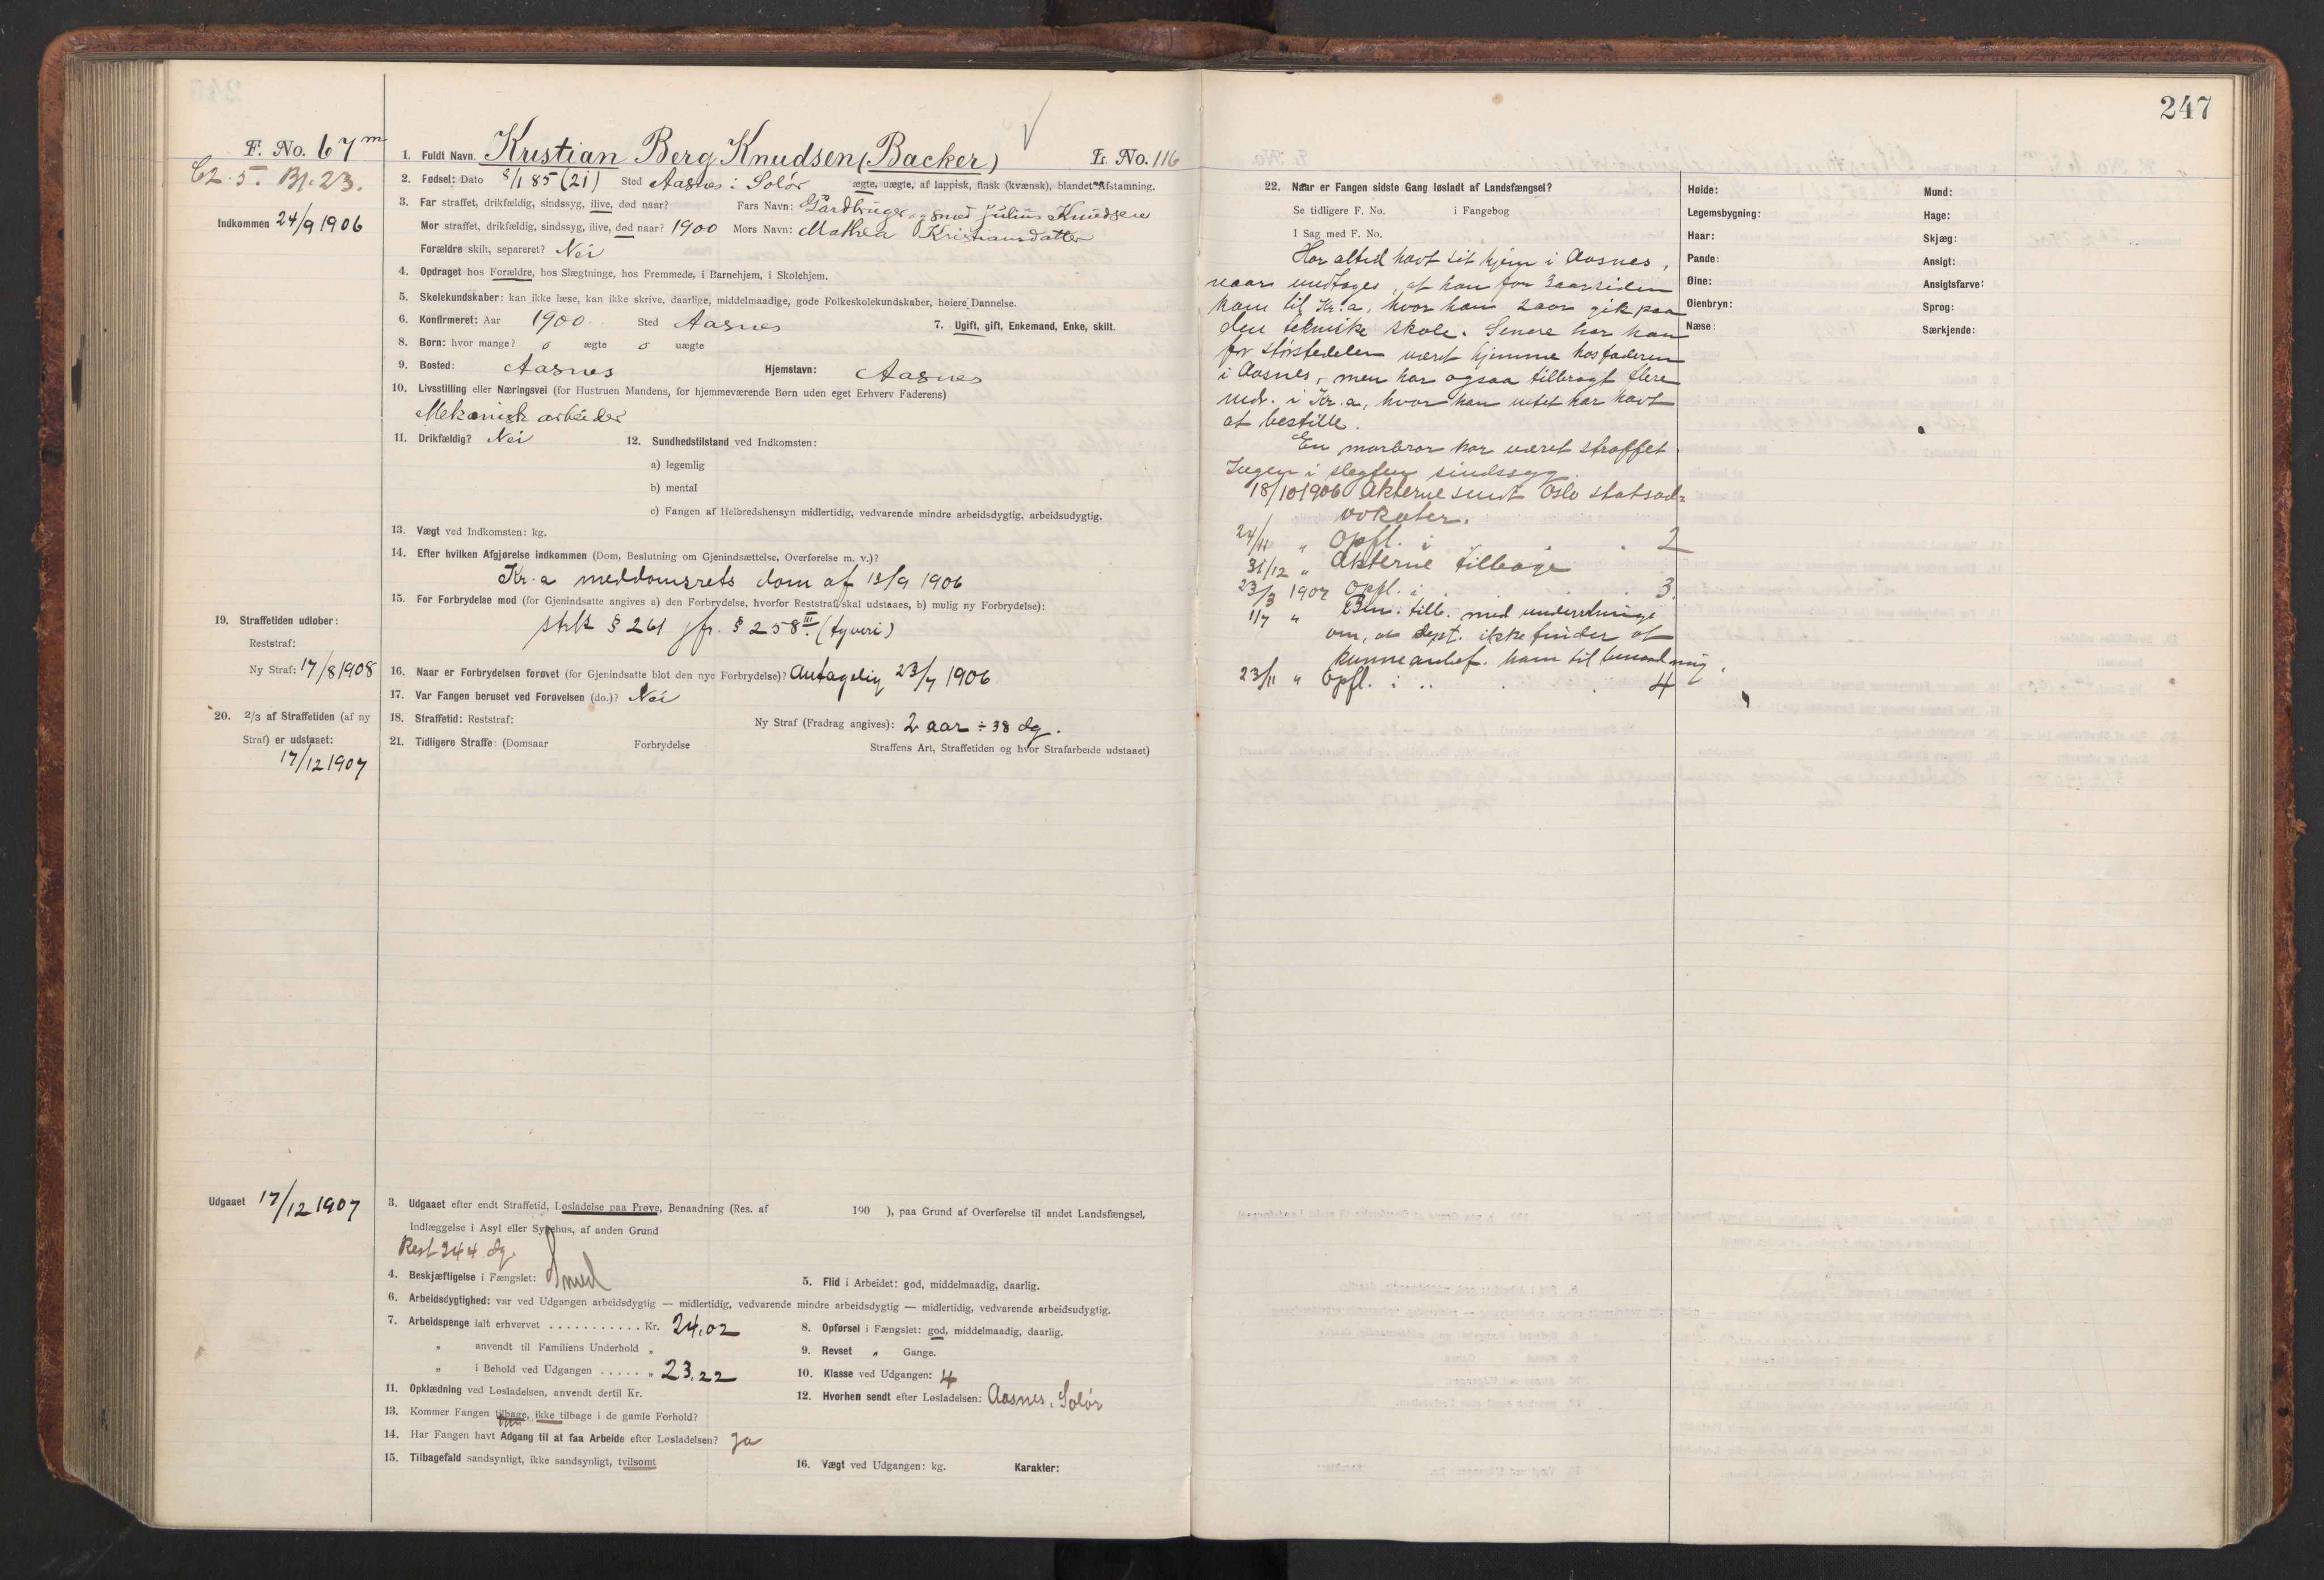 247
F. No. 67 m
Cl. 5. Bj. 23.
Indkommen 24/9 1906
1. Fuldt Navn. Kristian Berg Knudsen (Backer) L. No. 116
2. Fødsel: Dato 8/1 85 (21) Sted Aasnes i Solør ægte, uægte, af lappisk, finsk (kvænsk), blandet Afstamning.
3. Far straffet, drikfældig, sindssyg, ilive, død naar? Fars Navn: Gårdbruger og smed Julius Knudsen
Mor straffet, drikfældig, sindssyg, ilive, død naar? 1900 Mors Navn: Mathea Kristiansdatter
Forældre skilt, separeret? Nei
4. Opdraget hos Forældre, hos Slægtninge, hos Fremmede, i Barnehjem, i Skolehjem.
5. Skolekundskaber: kan ikke læse, kan ikke skrive, daarlige, middelmaadige, gode Folkeskolekundskaber, høiere Dannelse.
6. Konfirmeret: Aar 1900 Sted Aasnes 7. Ugift, gift, Enkemand, Enke, skilt.
8. Børn: hvor mange? 0 ægte 0 uægte
9. Bosted: Aasnes Hjemstavn: Aasnes
10. Livsstilling eller Næringsvei (for Hustruen Mandens, for hjemmeværende Børn uden eget Erhverv Faderens)
Mekanisk arbeider
11. Drikfældig? Nei 12. Sundhedstilstand ved Indkomsten:
a) legemlig
b) mental
c) Fangen af Helbredshensyn midlertidig, vedvarende mindre arbeidsdygtig, arbeidsudygtig.
13. Vægt ved Indkomsten: kg.
14. Efter hvilken Afgjørelse indkommen (Dom, Beslutning om Gjenindsættelse, Overførelse m. v.)?
Kr.a meddomsrets dom af 13/9 1906
15. For Forbrydelse mod (for Gjenindsatte angives a) den Forbrydelse, hvorfor Reststraf skal udstaaes, b) mulig ny Forbrydelse):
strl. § 261 jfr. § 258 III. (tyveri)
19. Straffetiden udløber:
Reststraf:
Ny Straf: 17/8 1908
16. Naar er Forbrydelsen forøvet (for Gjenindsatte blot den nye Forbrydelse)? Antagelig 23/7 1906
17. Var Fangen beruset ved Forøvelsen (do.)? Nei
20. 2/3 af Straffetiden (af ny
Straf) er udstaaet:
17/12 1907
18. Straffetid: Reststraf: Ny Straf (Fradrag angives): 2 aar ÷ 38 dg.
21. Tidligere Straffe: (Domsaar Forbrydelse Straffens Art, Straffetiden og hvor Strafarbeide udstaaet)
Udgaaet 17/12 1907
3. Udgaaet efter endt Straffetid, Løsladelse paa Prøve, Benaadning (Res. af 190 ), paa Grund af Overførelse til andet Landsfængsel,
Indlæggelse i Asyl eller Sygehus, af anden Grund
Rest 244 dg.
4. Beskjæftigelse i Fængslet: Smed 5. Flid i Arbeidet: god, middelmaadig, daarlig.
6. Arbeidsdygtighed: var ved Udgangen arbeidsdygtig — midlertidig, vedvarende mindre arbeidsdygtig — midlertidig, vedvarende arbeidsudygtig.
7. Arbeidspenge ialt erhvervet . . . . . . . . . . . Kr. 24,02 8. Opførsel i Fængslet: god, middelmaadig, daarlig.
„ anvendt til Familiens Underhold „ 9. Revset „ Gange.
„ i Behold ved Udgangen . . . . . „ 23,22 10. Klasse ved Udgangen: 4
11. Opklædning ved Løsladelsen, anvendt dertil Kr. 12. Hvorhen sendt efter Løsladelsen: Aasnes, Solør
13. Kommer Fangen tilbage, ikke tilbage i de gamle Forhold?
14. Har Fangen havt Adgang til at faa Arbeide efter Løsladelsen? Ja
15. Tilbagefald sandsynligt, ikke sandsynligt, tvilsomt 16. Vægt ved Udgangen: kg. Karakter:
22. Naar er Fangen sidste Gang løsladt af Landsfængsel?
Se tidligere F. No. i Fangebog
I Sag med F. No.
Har altid havt sit hjem i Aasnes,
naar undtages, at han for 3 aar siden
kom til Kr.a, hvor han 2 aar gik paa
den tekniske skole. Senere har han
for størstedelen været hjemme hos faderen
i Aasnes, men har ogsaa tilbragt flere
mdr. i Kr.a, hvor han intet har havt
at bestille.
En morbror har været straffet.
Ingen i slegten sindssyg.
18/10 1906 Akterne sendt Oslo statsad=
vokater.
24/11 „ Opfl. i . 2
31/12 „ Akterne tilbage
23/3 1907 Opfl. i . . 3.
1/7 „ Ben. tilb. med underretning
om, at dept. ikke finder at
kunne anbef. ham til benaadning.
23/11 „ Opfl. i .. . . 4
Høide:
Legemsbygning:
Haar:
Pande:
Øine:
Øienbryn:
Næse:
Mund:
Hage:
Skjæg:
Ansigt:
Ansigtsfarve:
Sprog:
Særkjende: